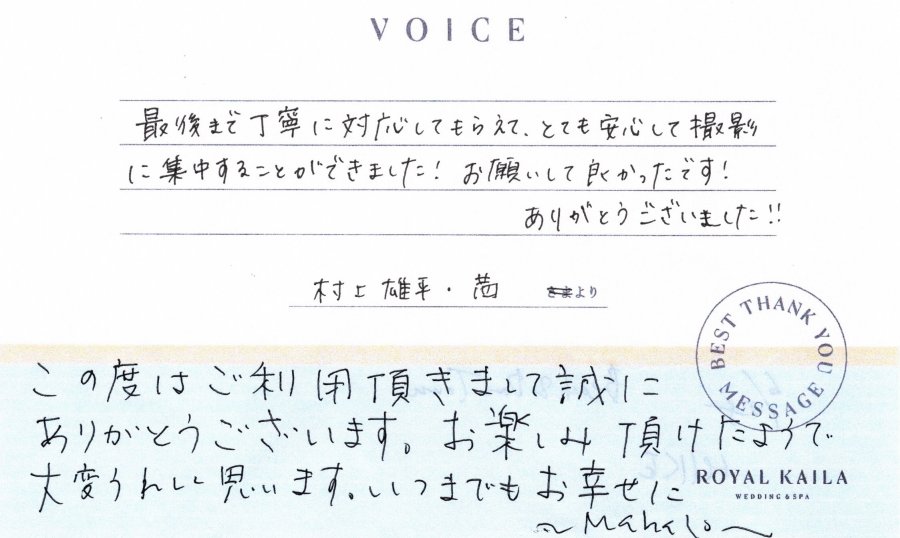 VOICE
最後まで丁寧に対応してもらえて、とても安心して撮影
に集中することができました! お願いして良かったです!
ありがとうございました!!
村上雄平・茜 さまより
BEST THANK YOU MESSAGE
この度はご利用頂きまして誠に
ありがとうございます。お楽しみ頂けたようで
大変うれしく思います。いつまでもお幸せに
ROYAL KAILA
WEDDING & SPA
~Mahalo~